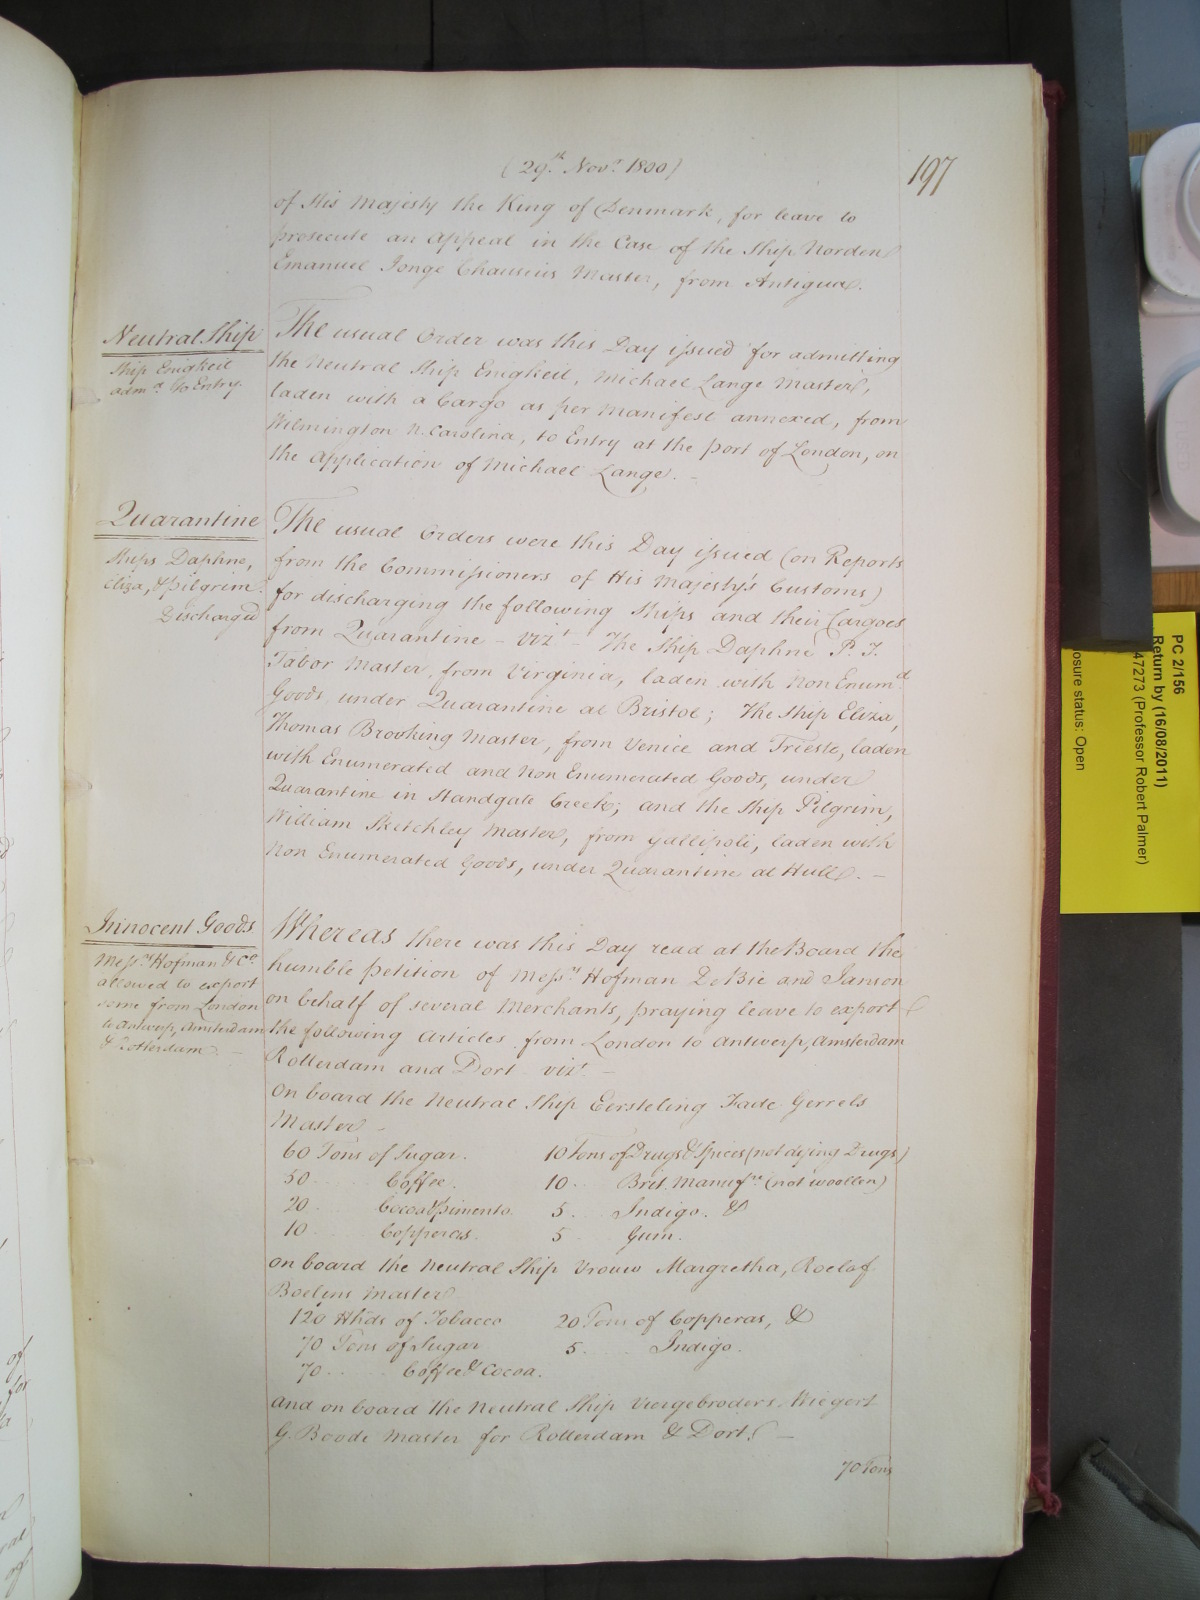 (29th Novr. 1800)
197
of His Majesty the King of Denmark, for leave to
prosecute an Appeal in the Case of the Ship Norden
Emanuel Jonge Chausius Master, from Antigua.
Neutral Ship
Ship Enigkeit
admd. to Entry.
The usual Order was this Day issued for admitting
the Neutral Ship Enigkeit, Michael Lange Master,
laden with a Cargo as per Manifest annexed, from
Wilmington N. Carolina, to Entry at the port of London, on
the Application of Michael Lange. -
Quarantine
Ships Daphne,
Eliza, & Pilgrim
Discharged
The usual Orders were this Day issued (on Reports
from the Commissioners of His Majesty's Customs)
for discharging the following Ships and their Cargoes
from Quarantine - vizt. - The Ship Daphne P. T.
Tabor Master, from Virginia, laden with Non Enumd.
Goods under Quarantine at Bristol; The Ship Eliza,
Thomas Brooking Master, from Venice and Trieste, laden
with Enumerated and Non Enumerated Goods, under
Quarantine in Standgate Creek; and the Ship Pilgrim,
William Sketchley Master, from Gallipoli, laden with
Non Enumerated Goods, under Quarantine at Hull. -
Innocent Goods
Messrs. Hofman & Co.
allowed to export
some from London
to Antwerp, Amsterdam
& Rotterdam. -
Whereas there was this Day read at the Board the
humble petition of Messrs. Hofman De Bie and Janson
on behalf of several Merchants, praying leave to export
the following Articles from London to Antwerp, Amsterdam
Rotterdam and Dort vizt. -
On board the Neutral Ship Eersteling Fade Gerrels
Master -
60 Tons of Sugar. 10 Tons of Drugs & Spices (not dying Drugs)
50 .... Coffee. 10 .. Brit. Manufrs. (not woollen)
20 .... Cocoa & Pimento 5 .. Indigo. &
10 .... Copperas. 5 .. Gum.
On board the Neutral Ship Vrouw Margretha, Roelof
Boelens Master
120 Hhds of Tobacco 20 Tons of Copperas, &
70 Tons of Sugar 5 .... Indigo.
70 .... Coffee & Cocoa.
And on board the Neutral Ship Wiegert
G. Boode Master for Rotterdam & Dort. -
70 Tons
PC 2/156
Return by (16/08/2011)
47273 (Professor Robert Palmer)
osure status: Open